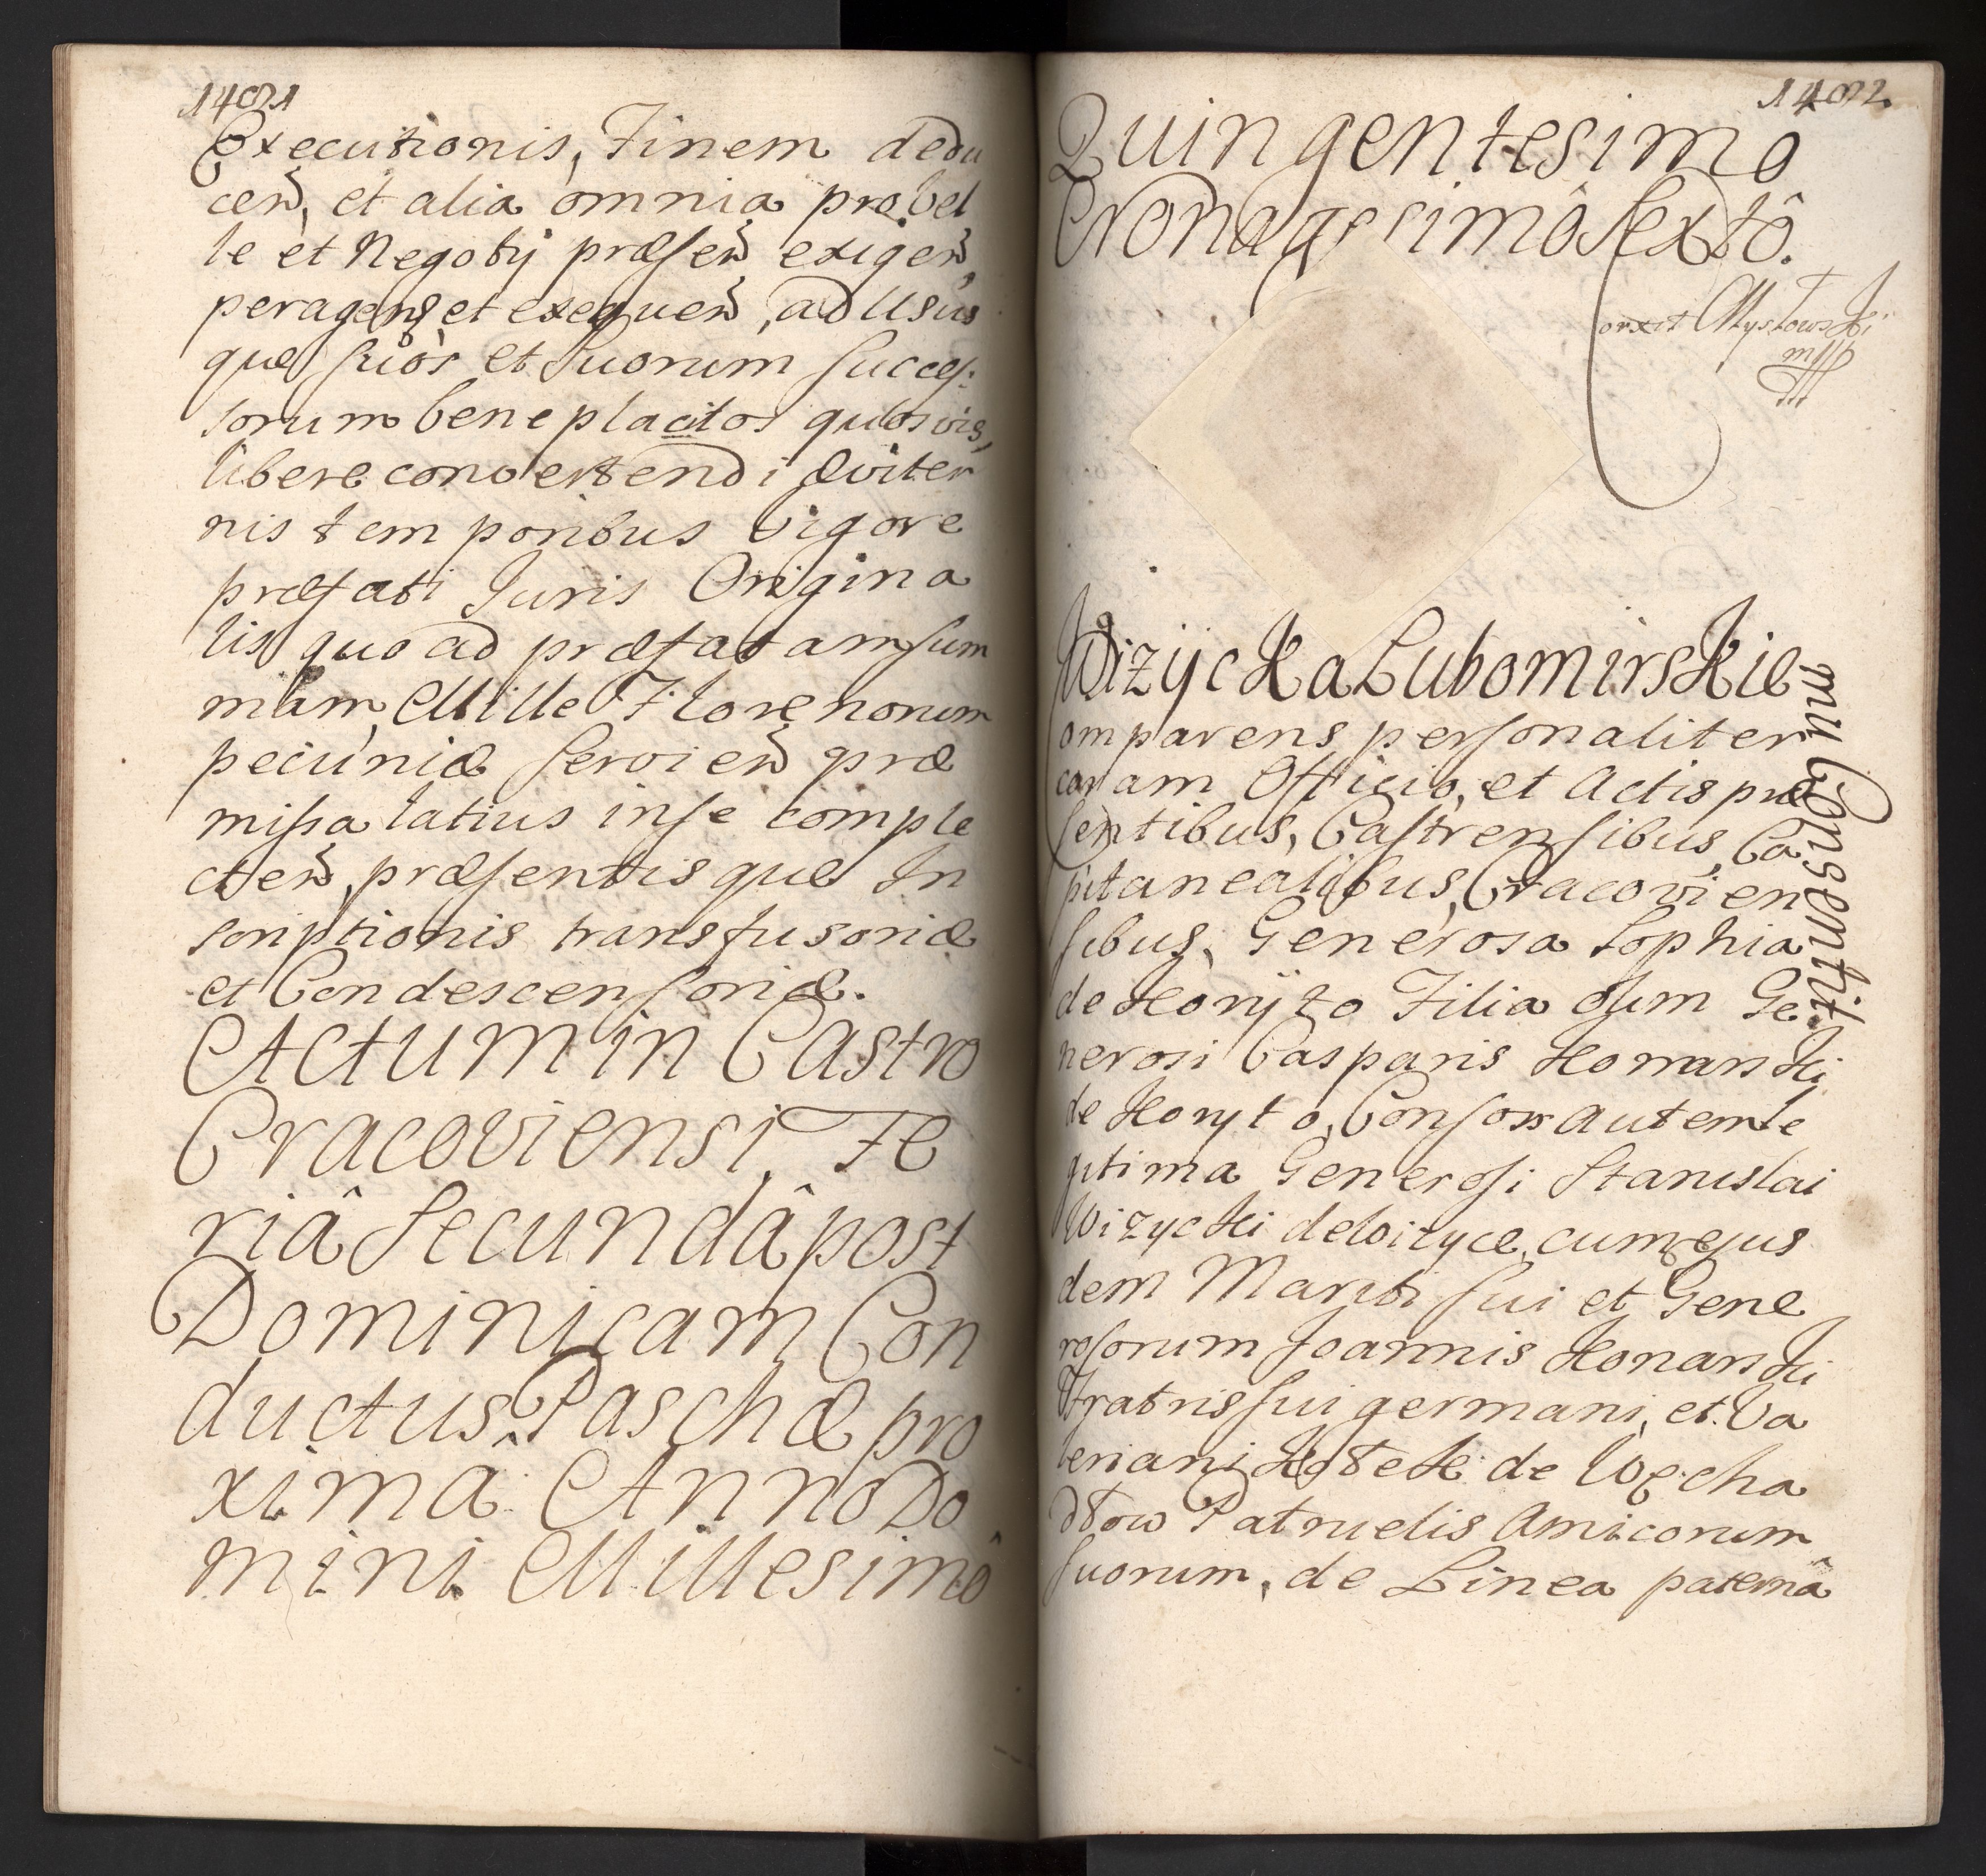 14021
Executionis, Finem dedu
ceñ, et alia omnia probel
le et Negotij præsen exigeñ,
peragen et exequeñ, ad Usus
que suos et Suorum Succes:
sorum beneplacitos quosvis,
libere convertendi Æviter
nis temporibus vigore
præfati Juris Origina
lis quo ad præfatam sum
mam, Mille Florenorum
pecuniæ servieñ præ
missa latius inse comple
cteñ, præsentisque In
scriptionis transfusoriæ
et Condescensoriæ.
Actum in Castro
Cracoviensi, Fe
riâ Secundâ post
Dominicam Con
ductus Paschæ pro
ximâ Anno Do
mini Millesimô
14022.
Quingentesimo
Nonagesimô Sextô.
Mystowski
mpp
Wizycka Lubomirskie
mu Consentit.
omparens personaliter
coram Officio, et Actis præ
sentibus, Castrensibus, Ca
pitanealibus, Cracovien
sibus, Generosa Sophia
de Koryto Filia olim Ge
nerosi Casparis Konarski
de Koryto, Consors autem le
gitima Generosi Stanislai
Wizycki de Wizyce, cum ejus
dem Mariti sui et Gene
rosorum Joannis Konarski
Fratris sui germani, et Va
leriani de Wę cha
dłow Patruelis Amicorum
suorum, de Linea paternâ